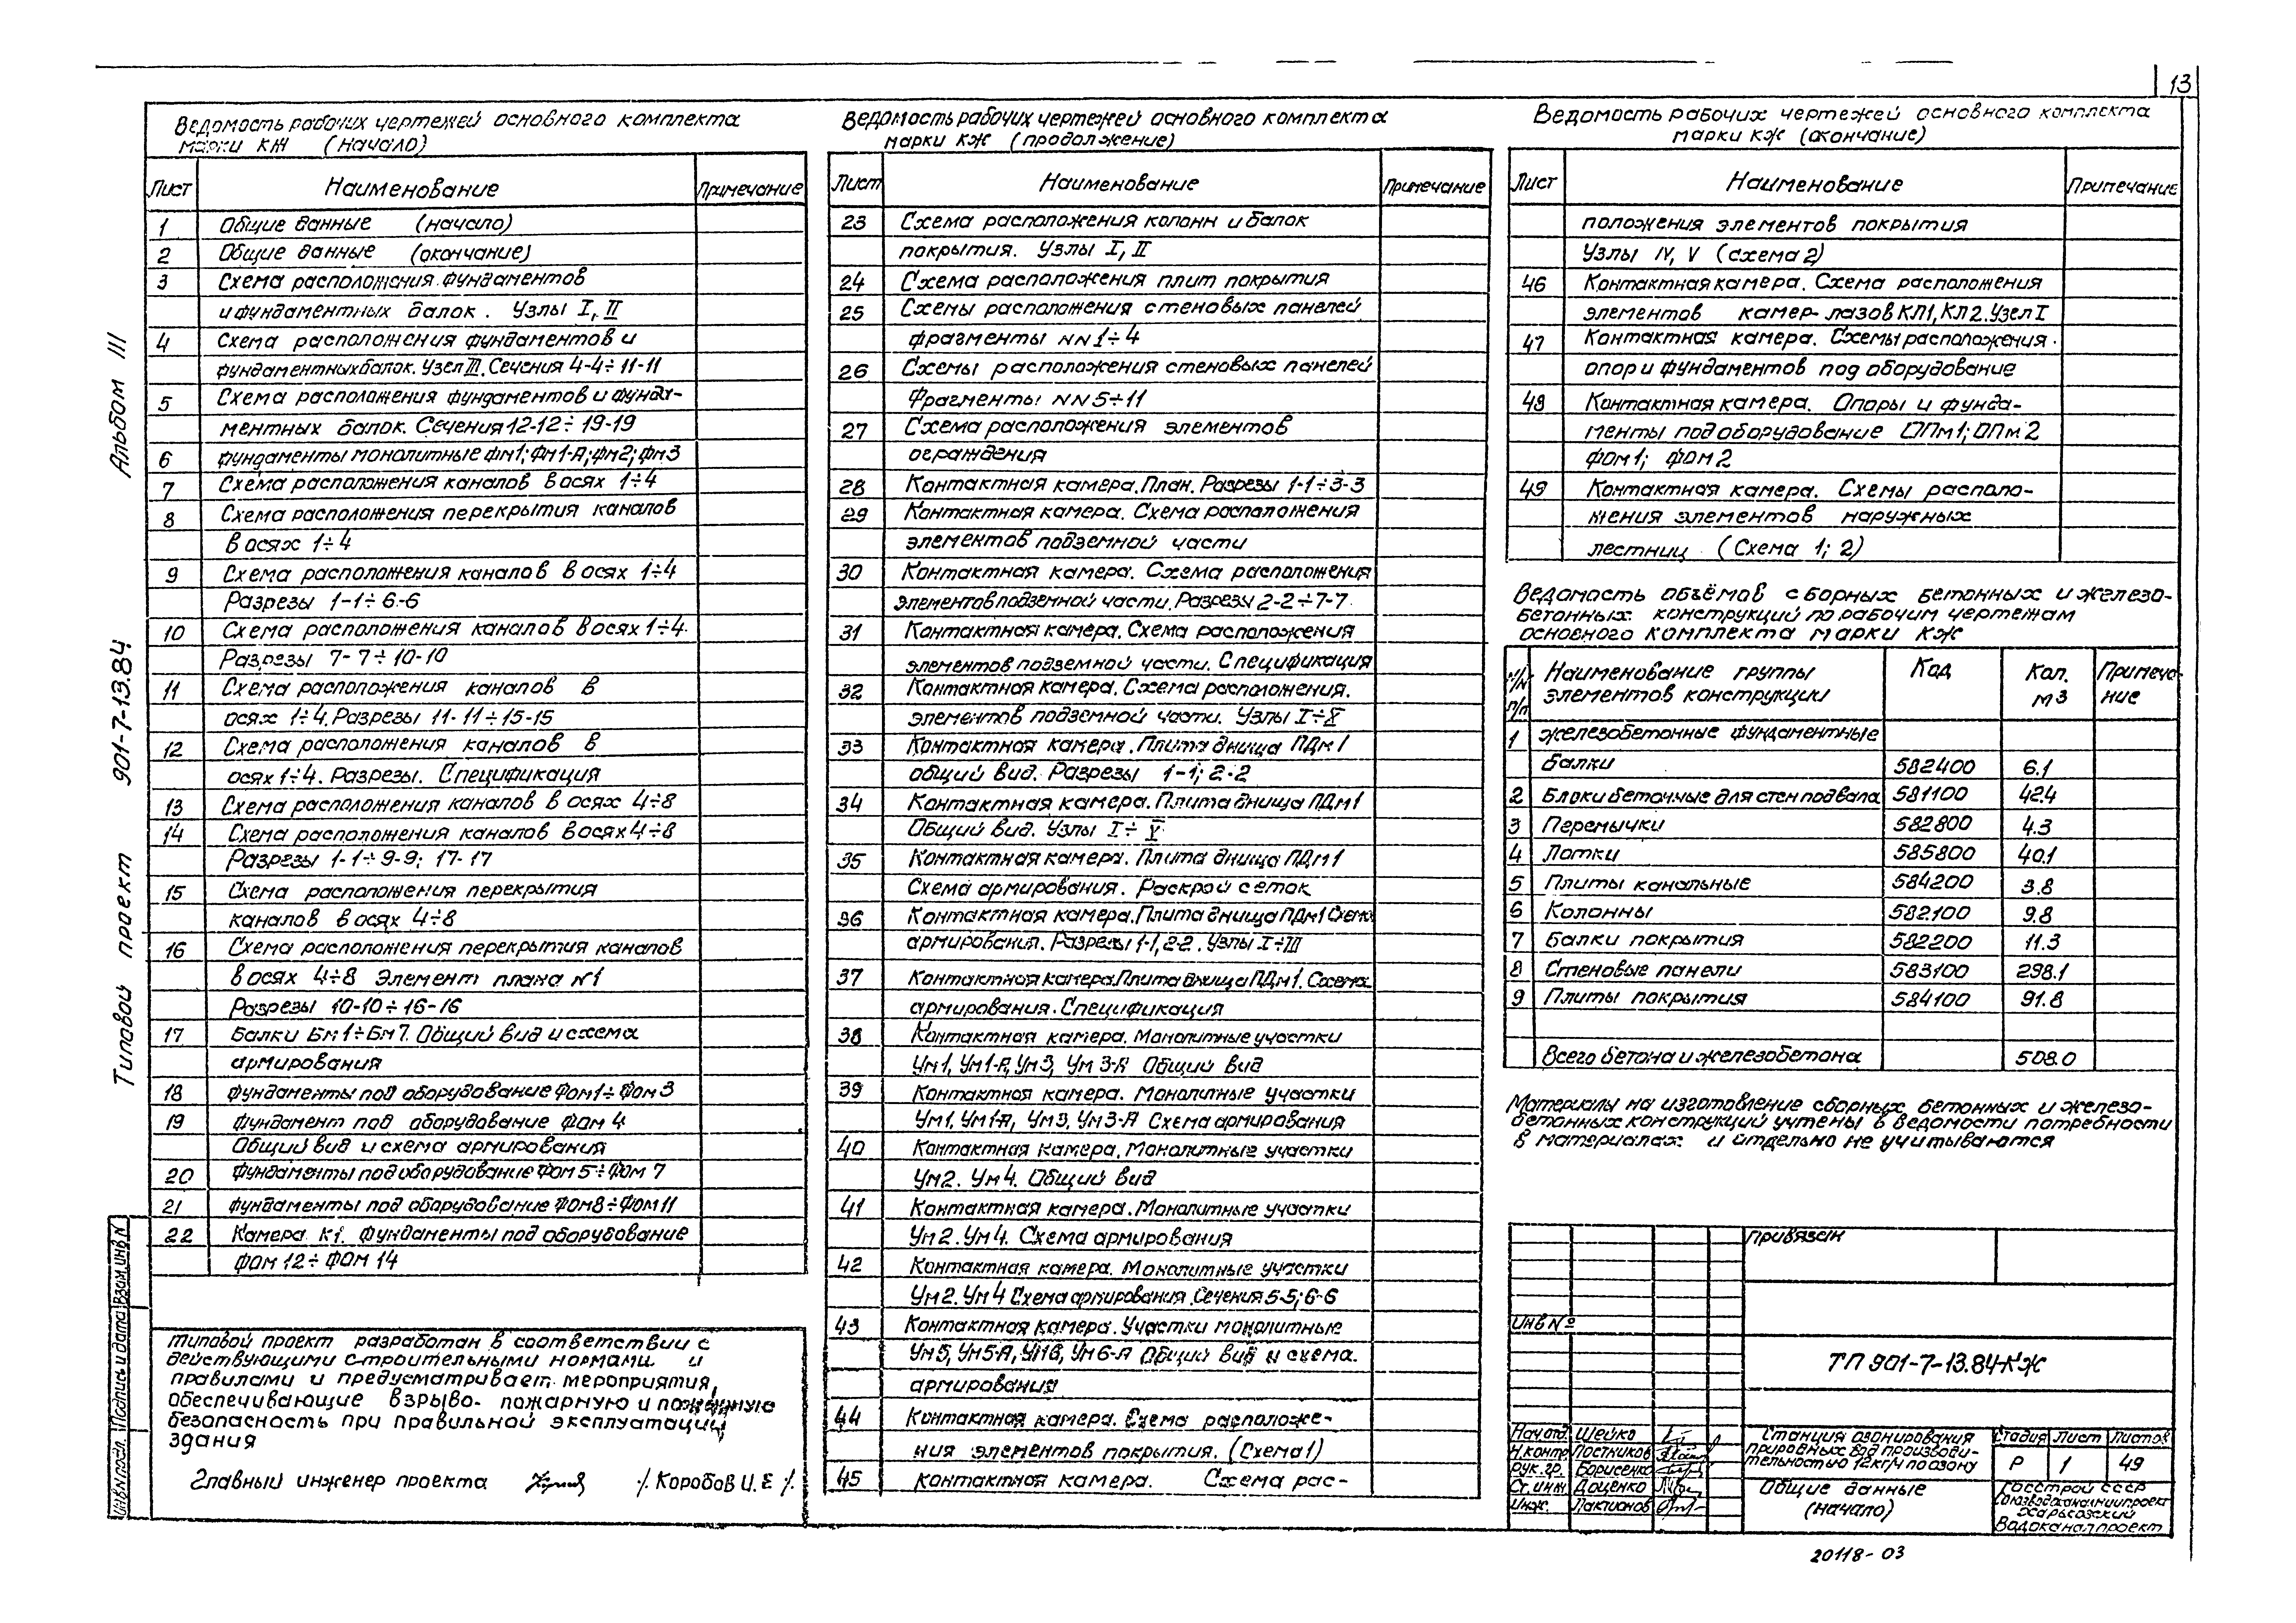 13
Альбом III
901-7-13.84
Типовой проект
Ведомость рабочих чертежей основного комплекта
марки КЖ (начало)
Лист Наименование Примечание
1 Общие данные (начало)
2 Общие данные (окончание)
3 Схема расположения фундаментов
и фундаментных балок. Узлы I, II
4 Схема расположения фундаментов и
фундаментных балок. Узел III. Сечения 4-4÷11-11
5 Схема расположения фундаментов и фунда-
ментных балок. Сечения 12-12÷19-19
6 Фундаменты монолитные Фм1; Фм1-А; Фм2; Фм3
7 Схема расположения каналов в осях 1÷4
8 Схема расположения перекрытия каналов
в осях 1÷4
9 Схема расположения каналов в осях 1÷4
Разрезы 1-1÷6-6
10 Схема расположения каналов в осях 1÷4.
Разрезы 7-7÷10-10
11 Схема расположения каналов в
осях 1÷4. Разрезы 11-11÷15-15
12 Схема расположения каналов в
осях 1÷4. Разрезы. Спецификация
13 Схема расположения каналов в осях 4÷8
14 Схема расположения каналов в осях 4÷8
Разрезы 1-1÷9-9; 17-17
15 Схема расположения перекрытия
каналов в осях 4÷8
16 Схема расположения перекрытия каналов
в осях 4÷8 Элемент плана N1
Разрезы 10-10÷16-16
17 Балки Бм1÷Бм7. Общий вид и схема
армирования
18 Фундаменты под оборудование Фом1÷Фом3
19 Фундамент под оборудование Фом 4
Общий вид и схема армирования
20 Фундаменты под оборудование Фом 5÷Фом 7
21 Фундаменты под оборудование Фом8÷Фом11
22 Камера К1. Фундаменты под оборудование
Фом 12÷Фом 14
Типовой проект разработан в соответствии с
действующими строительными нормами и
правилами и предусматривает мероприятия,
обеспечивающие взрыво- пожарную и пожарную
безопасность при правильной эксплуатации
здания
Главный инженер проекта /. Коробов И. Е /.
Взам. инв N
Подпись и дата
Инв N подл.
Ведомость рабочих чертежей основного комплекта
марки КЖ (продолжение)
Лист Наименование Примечание
23 Схема расположения колонн и балок
покрытия. Узлы I, II
24 Схема расположения плит покрытия
25 Схемы расположения стеновых панелей
фрагменты NN 1÷4
26 Схемы расположения стеновых панелей
Фрагменты NN 5÷11
27 Схема расположения элементов
ограждения
28 Контактная камера. План. Разрезы 1-1÷3-3
29 Контактная камера. Схема расположения
элементов подземной части
30 Контактная камера. Схема расположения
элементов подземной части. Разрезы 2-2÷7-7
31 Контактная камера. Схема расположения
элементов подземной части. Спецификация
32 Контактная камера. Схема расположения.
элементов подземной части. Узлы I÷X
33 Контактная камера. Плита днища ПДм1
общий вид. Разрезы 1-1; 2-2
34 Контактная камера. Плита днища ПДм1
Общий вид. Узлы I÷V
35 Контактная камера. Плита днища ПДм1
Схема армирования. Раскрой сеток
36 Контактная камера. Плита днища ПДм1 Схема
армирования. Разрезы 1-1, 2-2. Узлы I÷III
37 Контактная камера Плита днища ПДм1. Схема
армирования. Спецификация
38 Контактная камера. Монолитные участки
Ум1, Ум1-А, Ум3, Ум 3-А Общий вид
39 Контактная камера. Монолитные участки
Ум1, Ум1-А, Ум3, Ум3-А Схема армирования
40 Контактная камера. Монолитные участки
Ум2. Ум4. Общий вид
41 Контактная камера. Монолитные участки
Ум2. Ум4. Схема армирования
42 Контактная камера. Монолитные участки
Ум2. Ум4 Схема армирования. Сечения 5-5; 6-6
43 Контактная камера. Участки монолитные
Ум5, Ум5-А, Ум6, Ум6-А Общий вид и схема.
армирования
44 Контактная камера. Схема расположе-
ния элементов покрытия. (Схема 1)
45 контактная камера. Схема рас-
Ведомость рабочих чертежей основного комплекта
марки КЖ (окончание)
Лист Наименование Примечание
положения элементов покрытия
Узлы IV, V (схема 2)
46 Контактная камера. Схема расположения
элементов камер-лазов КЛ1, КЛ2. Узел I
47 Контактная камера. Схемы расположения
опор и фундаментов под оборудование
48 Контактная камера. Опоры и фунда-
менты под оборудование ОПм1; ОПм2
Фом1; Фом2
49 Контактная камера. Схемы располо-
жения элементов наружных
лестниц (Схема 1; 2)
Ведомость объёмов сборных бетонных и железо-
бетонных конструкций по рабочим чертежам
основного комплекта марки КЖ
NN п/п Наименование группы элементов конструкции Код Кол. м3 Примеча-ние
1 железобетонные фундаментные
балки 582400 6.1
2 Блоки бетонные для стен подвала 581100 42.4
3 Перемычки 582800 4.3
4 Лотки 585800 40.1
5 Плиты канальные 584200 3.8
6 Колонны 582100 9.8
7 Балки покрытия 582200 11.3
8 Стеновые панели 583100 298.1
9 Плиты покрытия 584100 91.8
Всего бетона и железобетона 508.0
Материалы на изготовление сборных бетонных и железо-
бетонных конструкций учтены в ведомости потребности
в материалах и отдельно не учитываются
Привязан
Инв №
ТП 901-7-13.84-КЖ
Нач.отд. Шейко
Н.контр. Постников
Рук. гр. Борисенко
Ст. инж. Доценко
Инж. Лактионов
Станция озонирования
природных вод производи-
тельностью 12кг/ч по озону
Стадия Лист Листов
Р 1 49
Общие данные
(начало)
Госстрой СССР
Союзводоканалниипроект
Харьковский
Водоканалпроект
20118-03